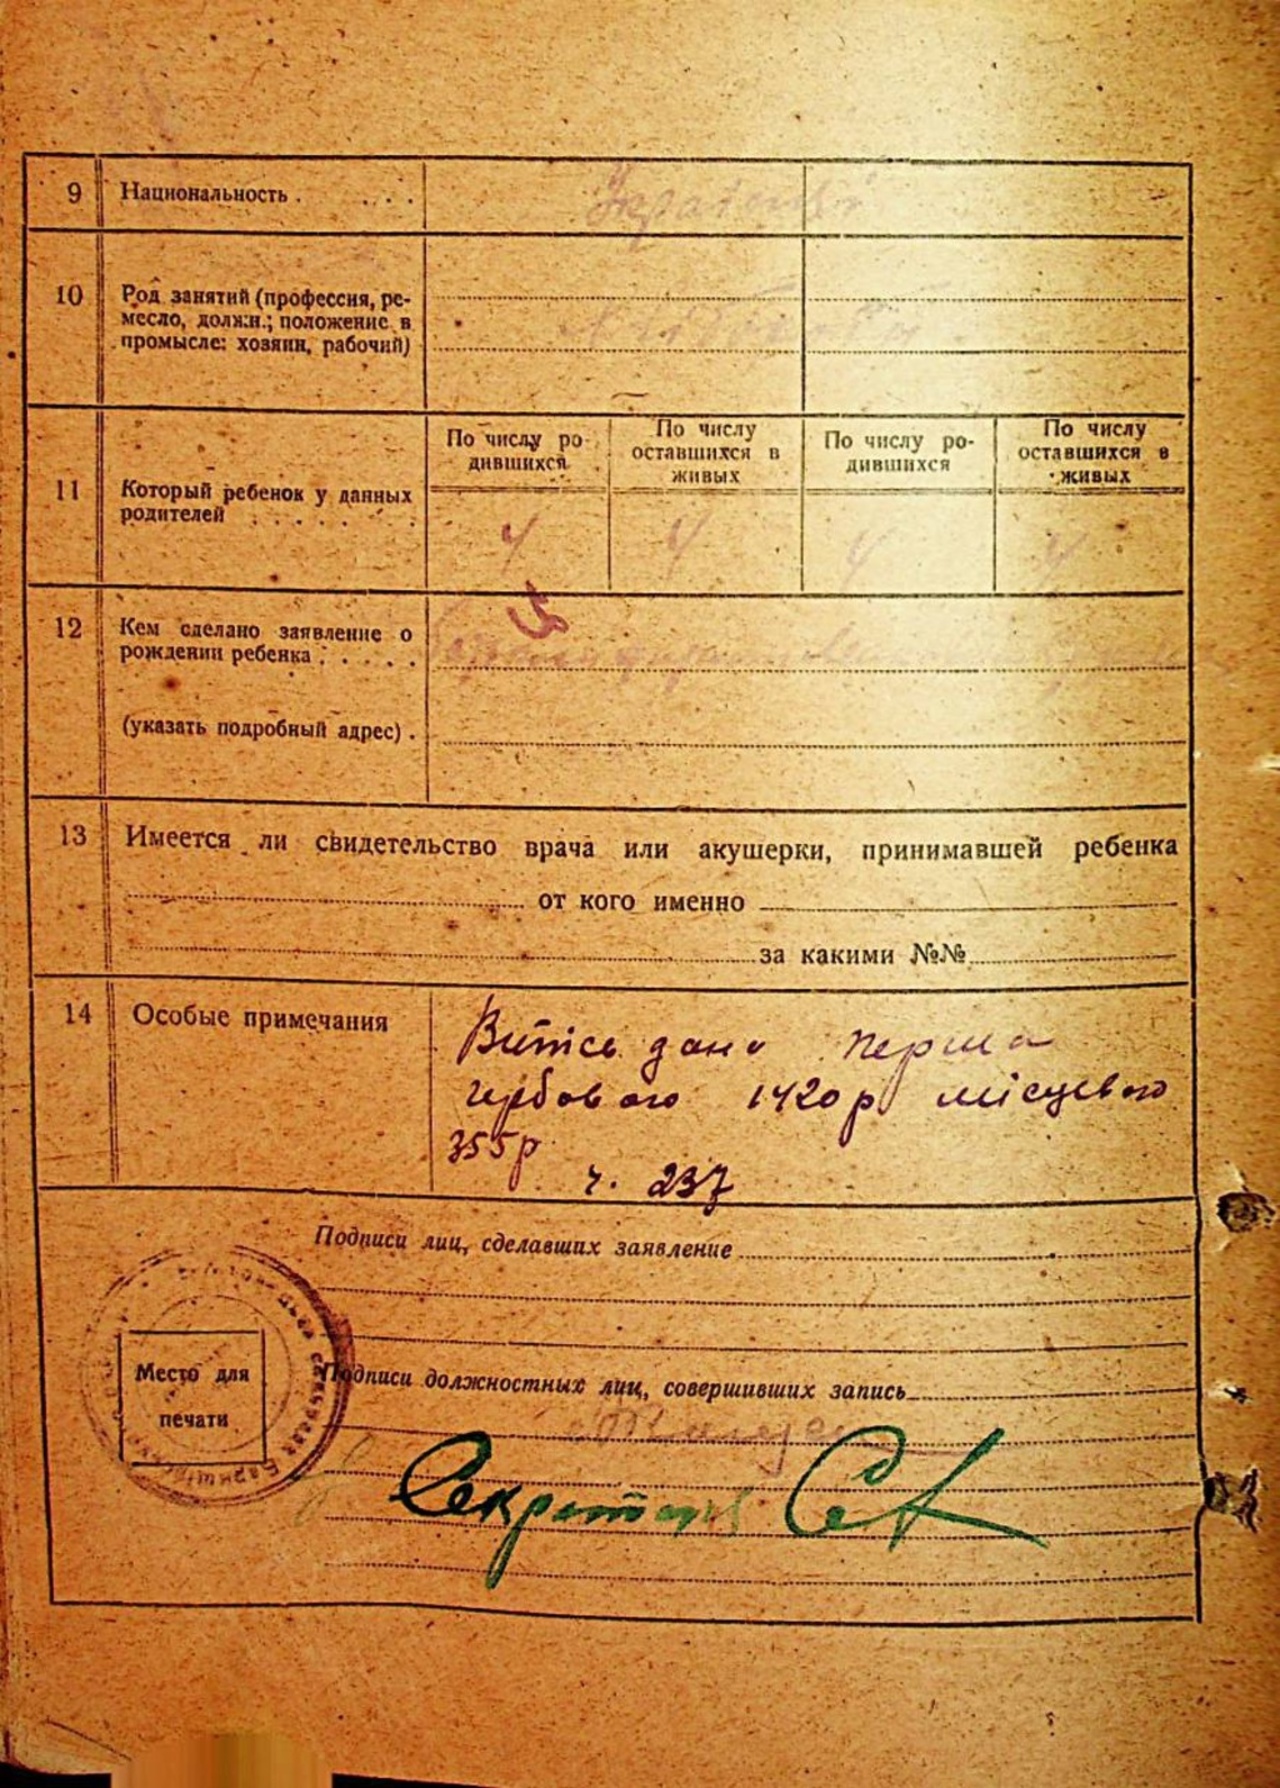 9 Национальность . . . . Українці
10 Род занятий (профессия, ре-
месло, должн.; положение в
промысле: хозяин, рабочий)
11 Который ребенок у данных
родителей . . . . . .
По числу ро-
дившихся
По числу
оставшихся в
живых
По числу ро-
дившихся
По числу
оставшихся в
живых
4 4 4 4
12 Кем сделано заявление о
рождении ребенка . . . . .
(указать подробный адрес) .
13 Имеется ли свидетельство врача или акушерки, принимавшей ребенка
от кого именно
за какими №№
14 Особые примечания
Витісь дано перша
гербового 1420р місцевого
355р
ч. 237
Подписи лиц, сделавших заявление
Место для
печати
Подписи должностных лиц, совершивших запись
Секретарь